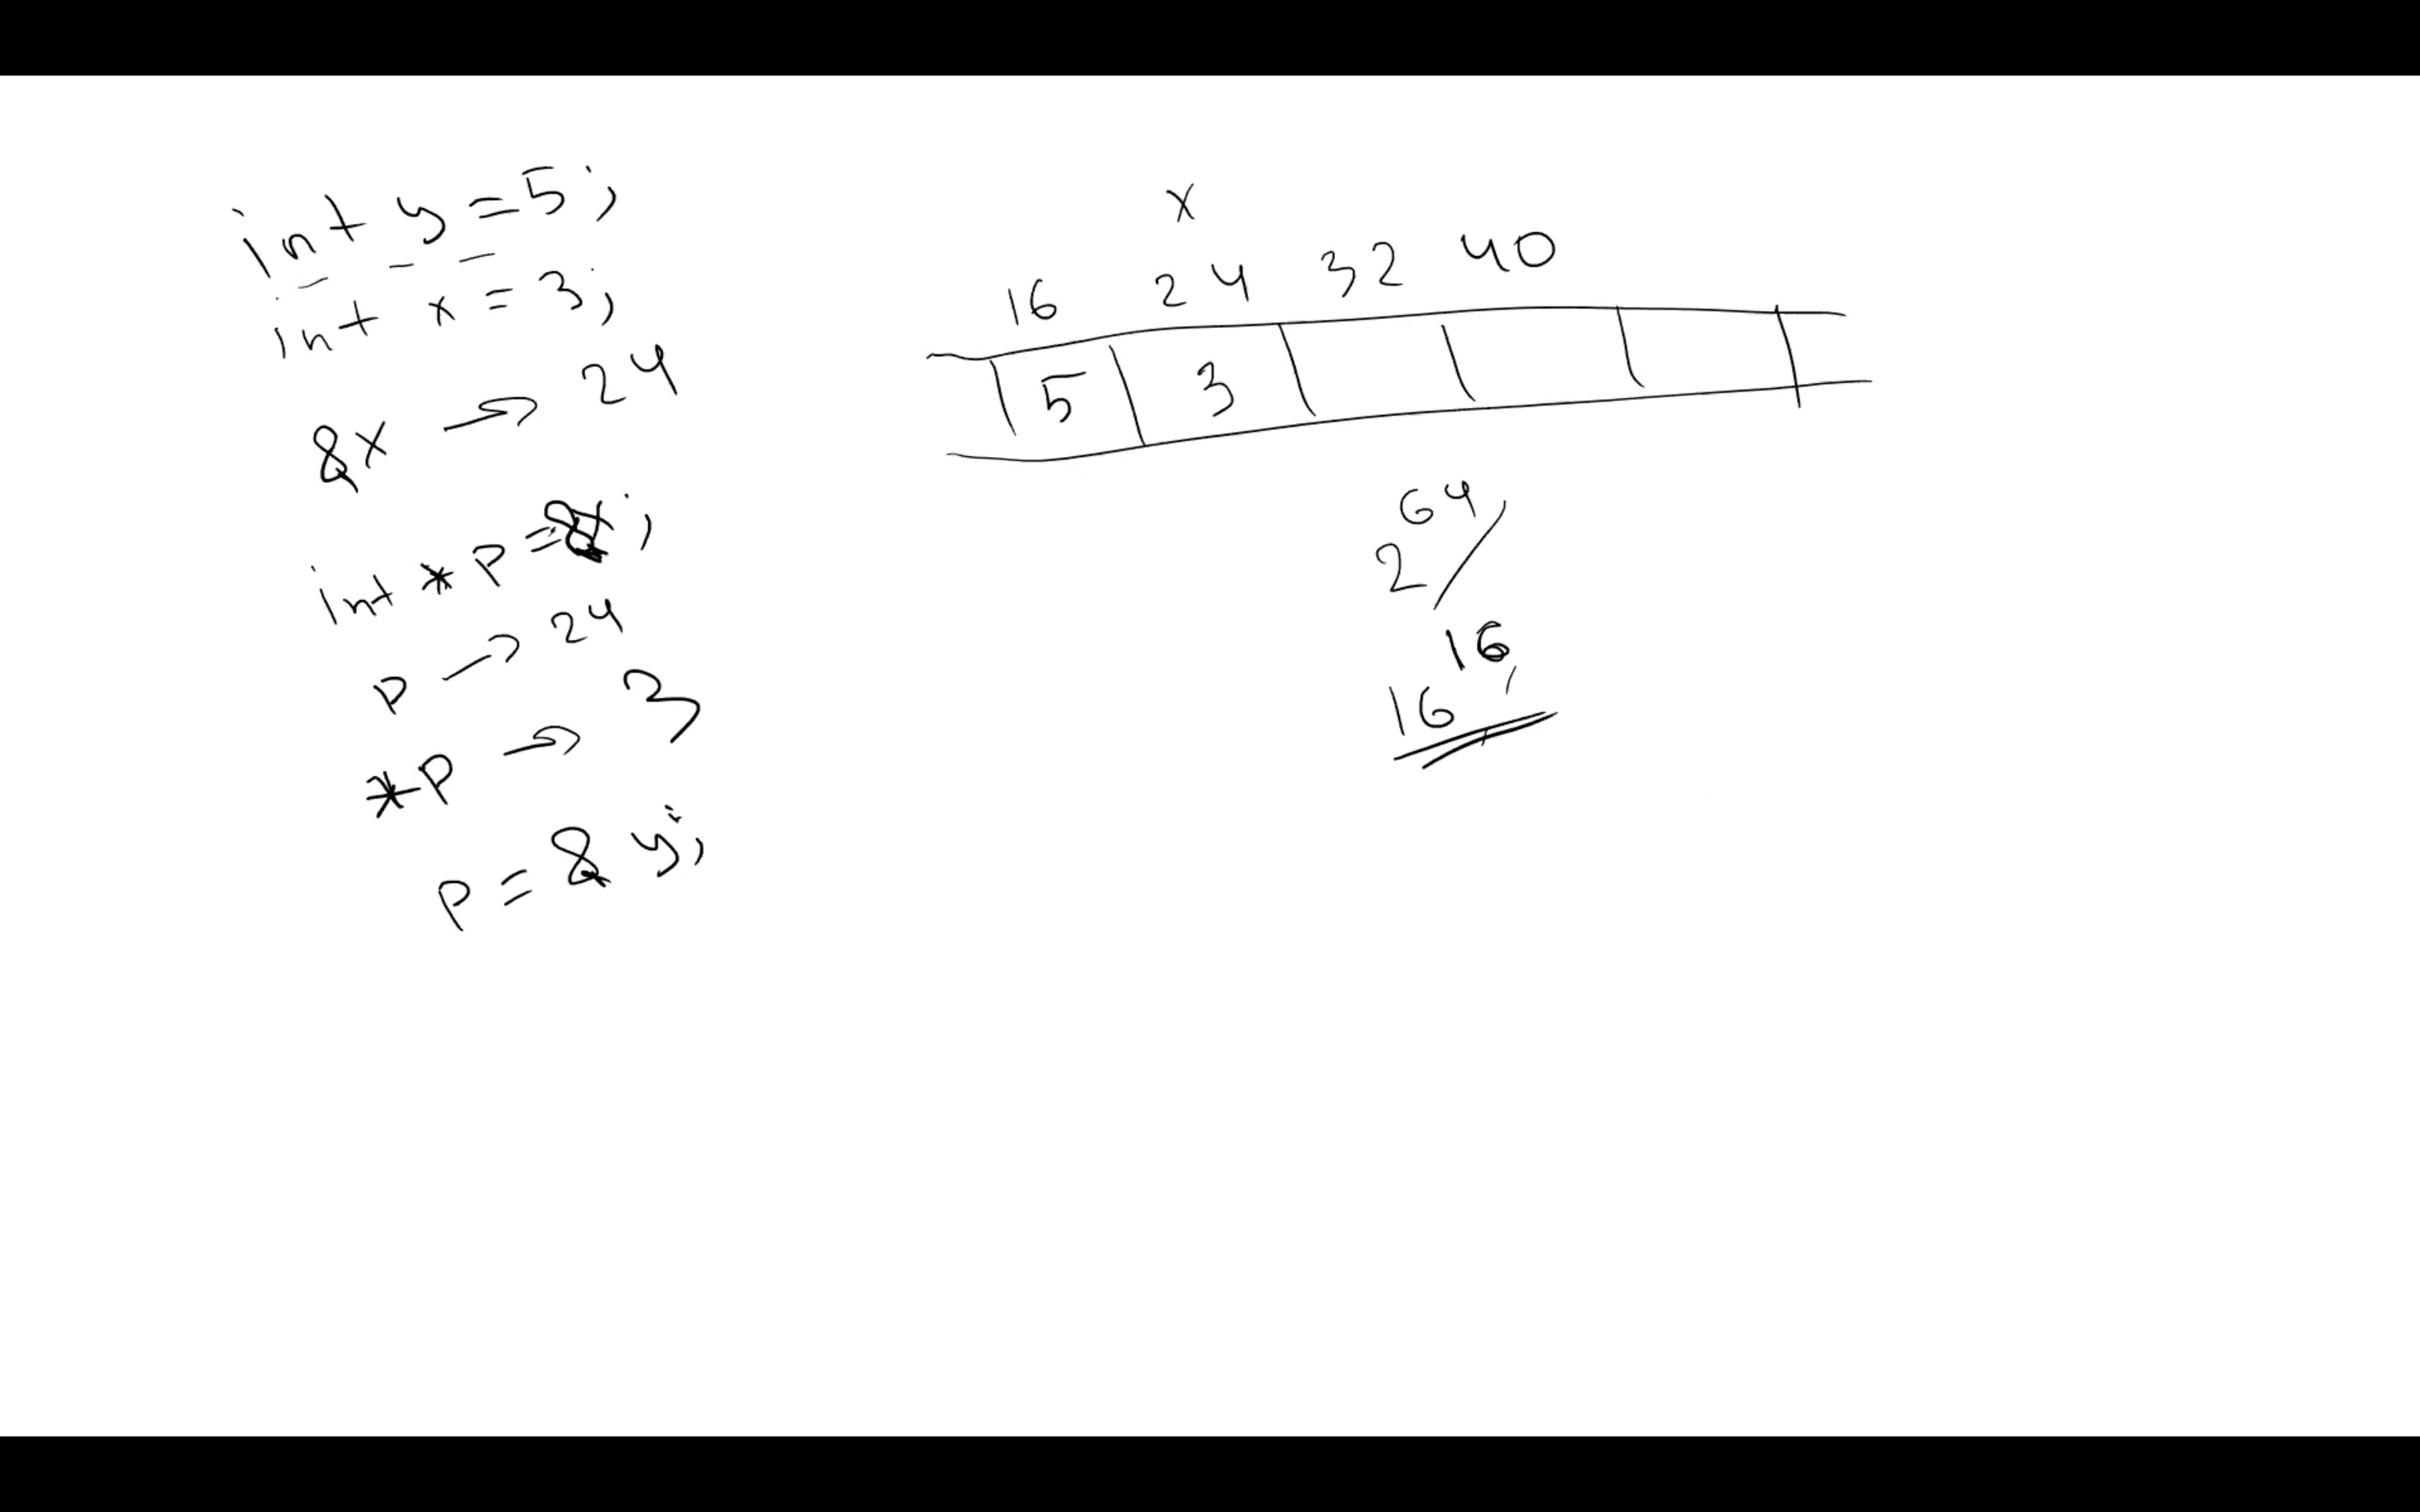 int y = 5;
int x = 3;
&x → 24
int *p = &x;
p → 24
*p → 3
p = &y;
x
16 24 32 40
5 3
2^64 /
16
16